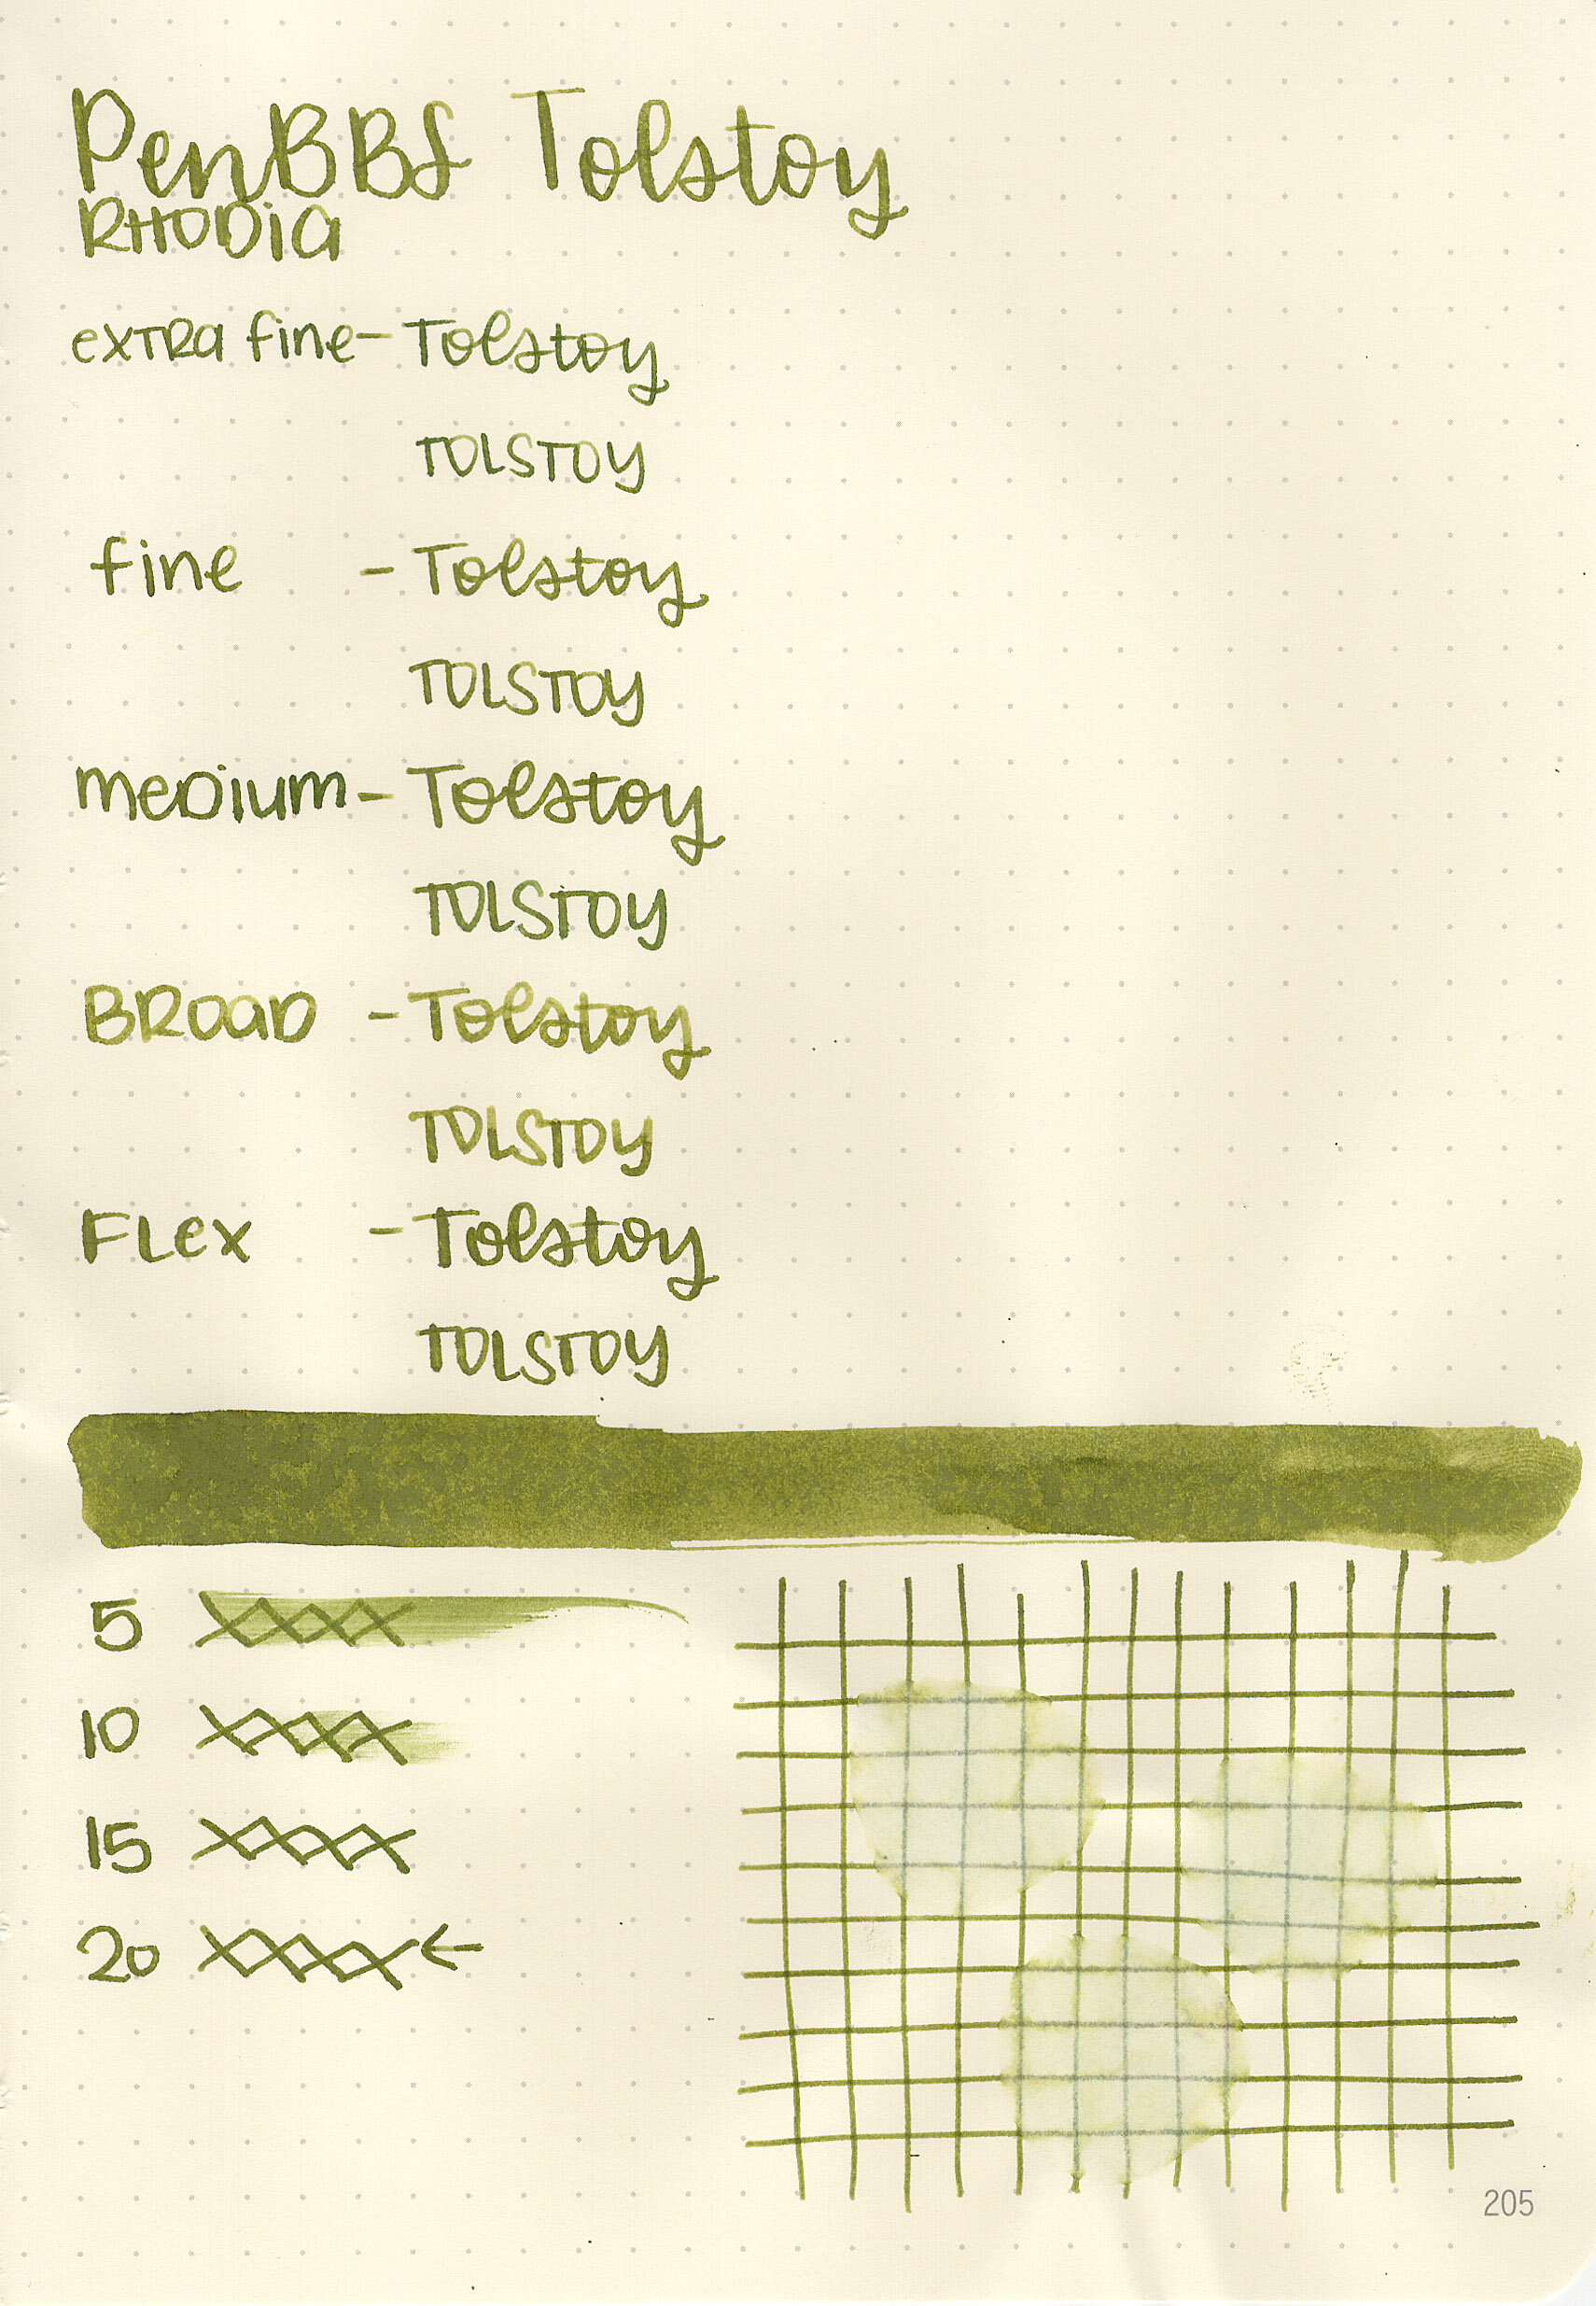 PenBBS Tolstoy
RHODIA
extra fine - Tolstoy
TOLSTOY
fine - Tolstoy
TOLSTOY
medium - Tolstoy
TOLSTOY
BROAD - Tolstoy
TOLSTOY
FLex - Tolstoy
TOLSTOY
5 XXXX
10 XXXX
15 XXXX
20 XXXX ←
205